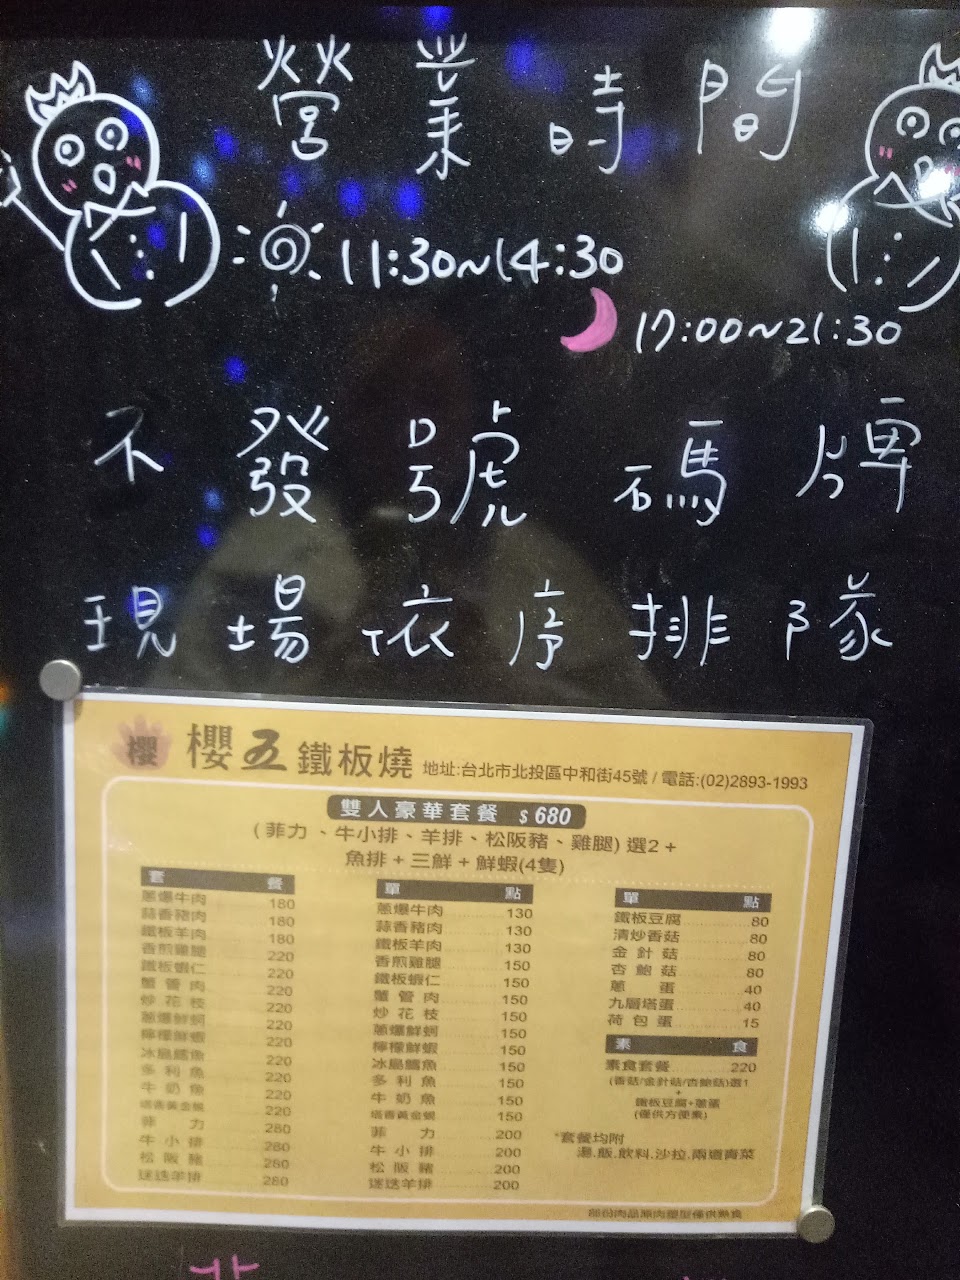 營業時間
11:30~14:30
17:00~21:30
不發號碼牌
現場依序排隊
櫻 櫻五鐵板燒 地址:台北市北投區中和街45號 / 電話:(02)2893-1993
雙人豪華套餐 $680
(菲力、牛小排、羊排、松阪豬、雞腿) 選2 +
魚排 + 三鮮 + 鮮蝦(4隻)
套餐
蔥爆牛肉 180
蒜香豬肉 180
鐵板羊肉 180
香煎雞腿 220
鐵板蝦仁 220
蟹管肉 220
炒花枝 220
蔥爆鮮蚵 220
檸檬鮮蝦 220
冰島鱈魚 220
多利魚 220
牛奶魚 220
塔香黃金蜆 220
菲力 280
牛小排 280
松阪豬 280
迷迭羊排 280
單點
蔥爆牛肉 130
蒜香豬肉 130
鐵板羊肉 130
香煎雞腿 150
鐵板蝦仁 150
蟹管肉 150
炒花枝 150
蔥爆鮮蚵 150
檸檬鮮蝦 150
冰島鱈魚 150
多利魚 150
牛奶魚 150
塔香黃金蜆 150
菲力 200
牛小排 200
松阪豬 200
迷迭羊排 200
單點
鐵板豆腐 80
清炒香菇 80
金針菇 80
杏鮑菇 80
蔥蛋 40
九層塔蛋 40
荷包蛋 15
素食
素食套餐 220
(香菇/金針菇/杏鮑菇)選1
+
鐵板豆腐+蔥蛋
(僅供方便素)
*套餐均附
湯.飯.飲料.沙拉.兩道青菜